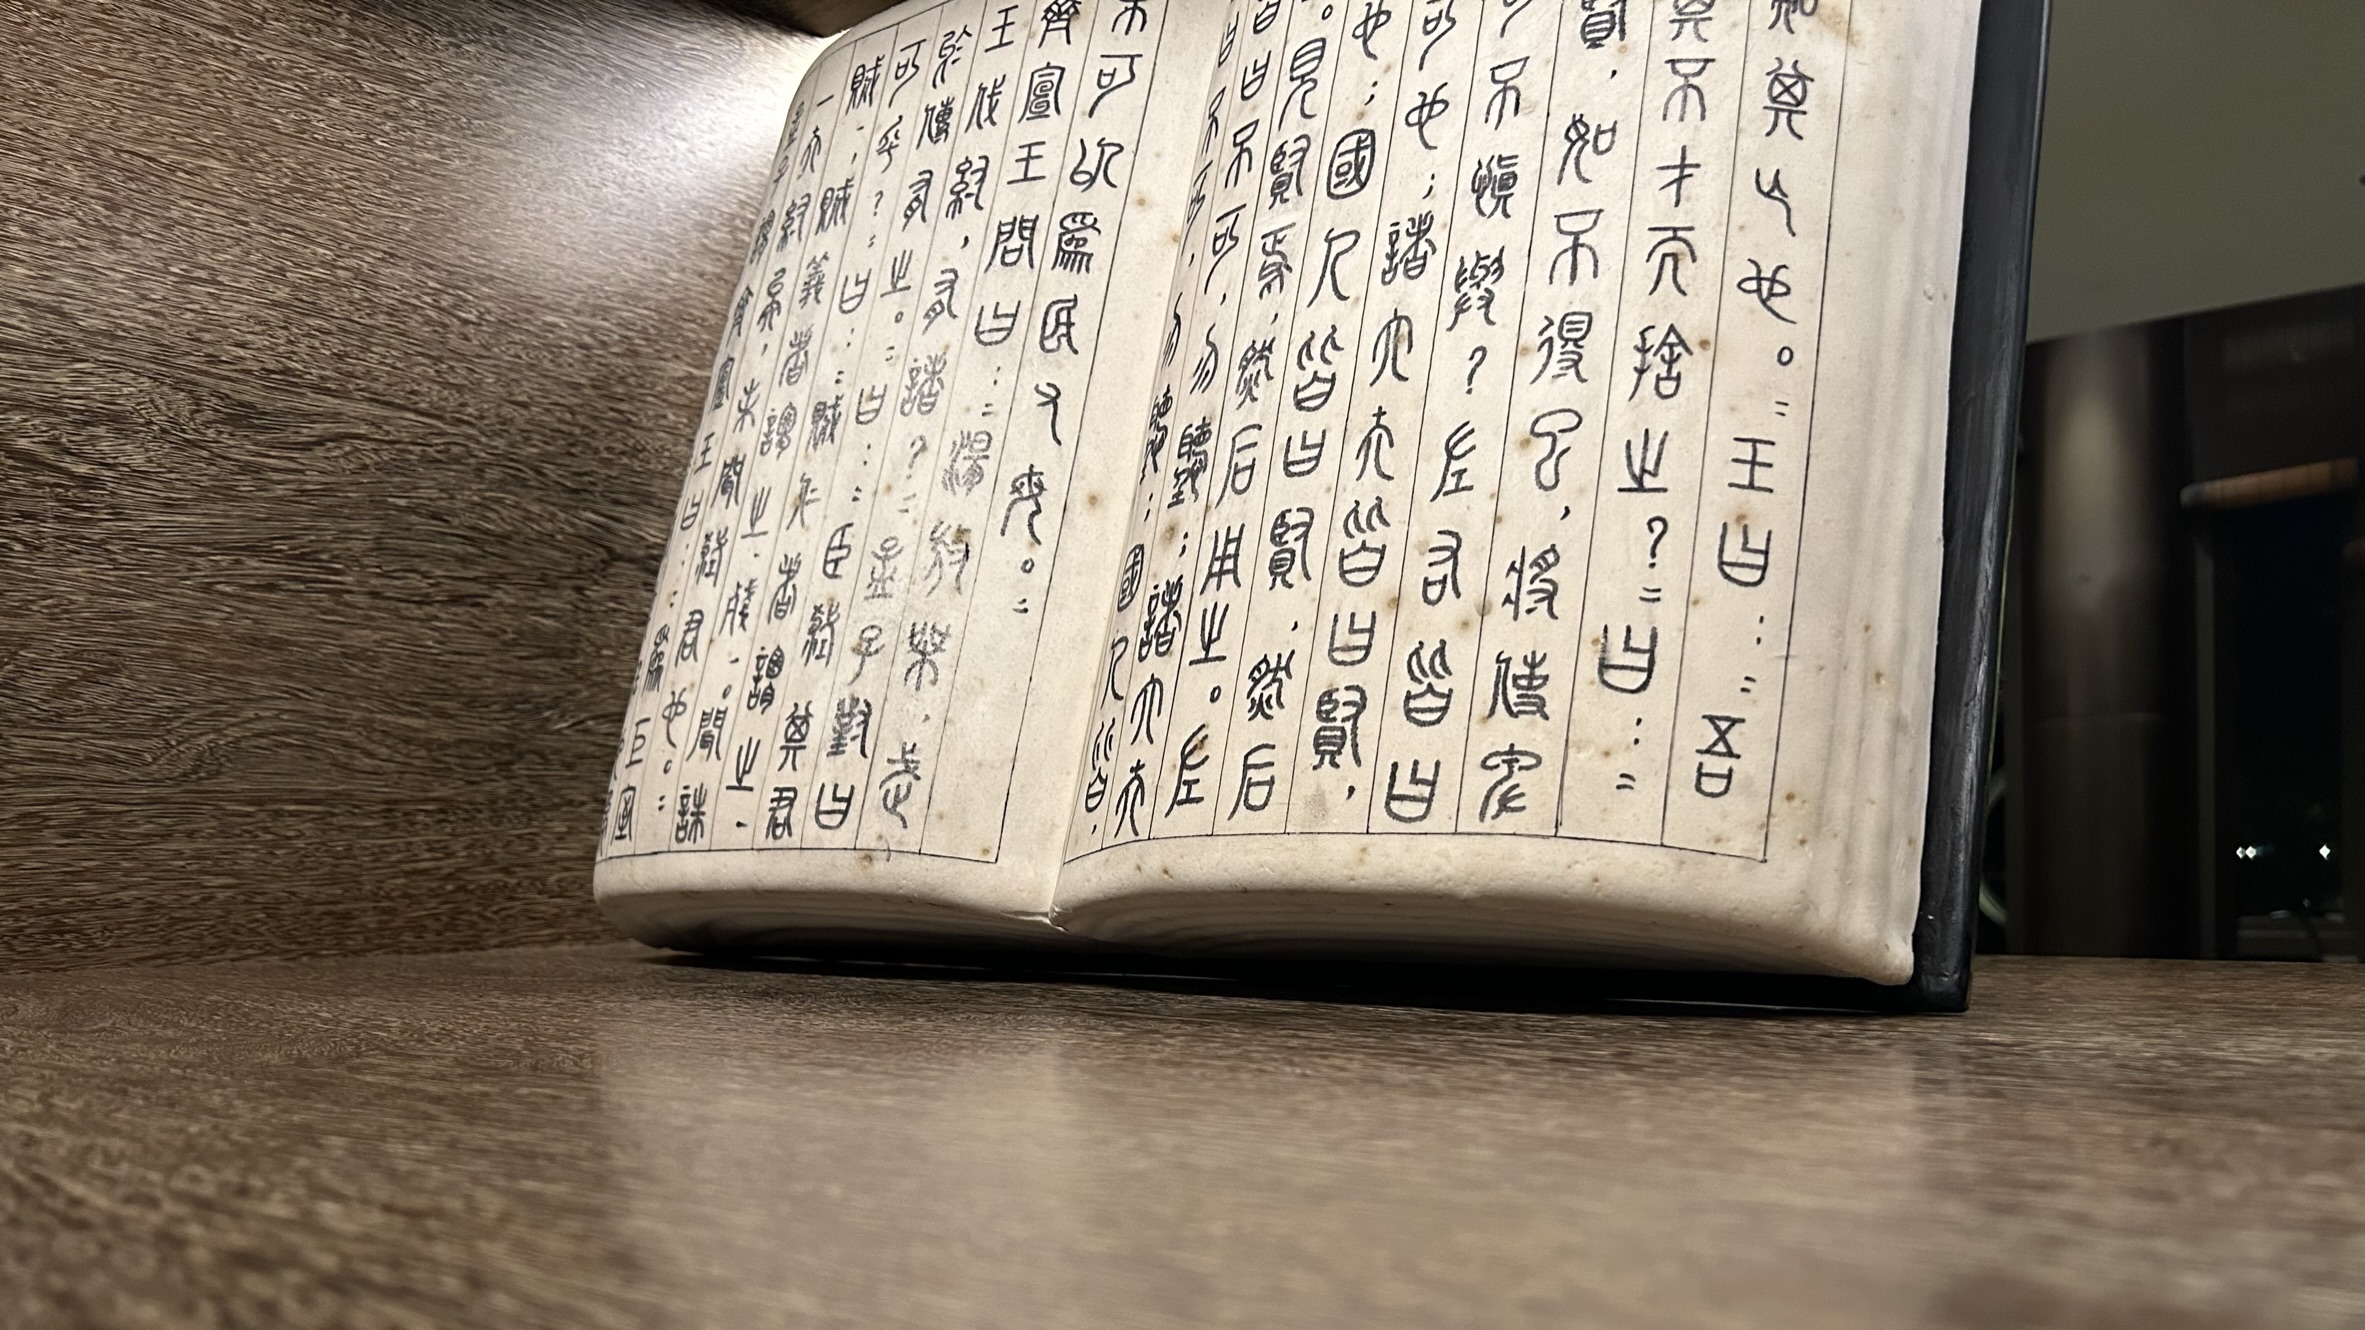 知其亡也。=王曰:=吾
其不才而捨之?=曰:=
賢,如不得已,將使卑
可不慎與?左右皆曰
可也;諸大夫皆曰賢,
也;國人皆曰賢,然后
。見賢焉,然后用之。左
皆曰不可,勿聽;諸大夫
皆曰不可,勿聽;國人皆曰
可以爲民父母。=
齊宣王問曰:=湯放桀,武
王伐紂,有諸?=孟子對曰
於傳有之。=曰:=臣弒其君
可乎?=曰:=賊仁者謂之
賊;賊義者謂之殘。聞誅
一夫紂矣,未聞弒君也。=
孟子謂齊宣王曰:爲巨室